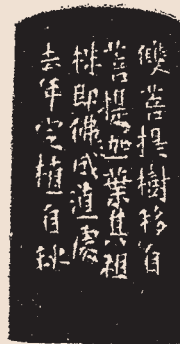 菩提樹移自
菩提迦葉其祖
即佛成道處
去年定植自